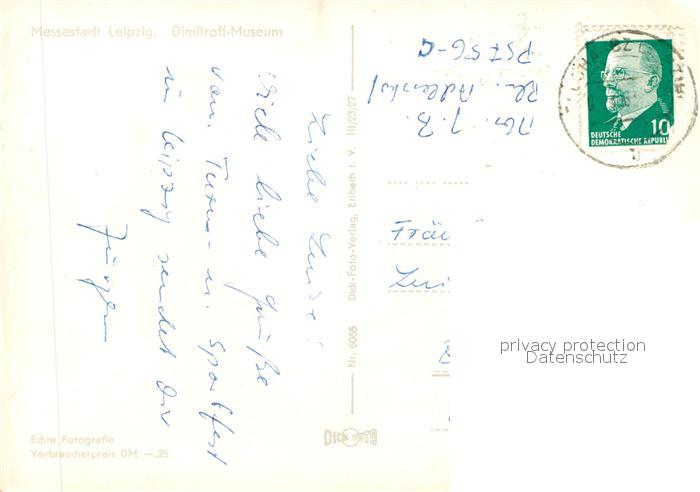 Messestadt Leipzig. Dimitroff-Museum
Liebe Luise!
Viele liebe Grüße
vom Turn- u. Sportfest
in Leipzig sendet Dir
Jürgen
Echte Fotografie
Verbraucherpreis DM —.25
Nr. 6065 Dick-Foto-Verlag, Erlbach i. V. III/23/27
DICK FOTO
PSF 56-C
DEUTSCHE
DEMOKRATISCHE REPUBLIK
10
Fräu
Lui
privacy protection
Datenschutz